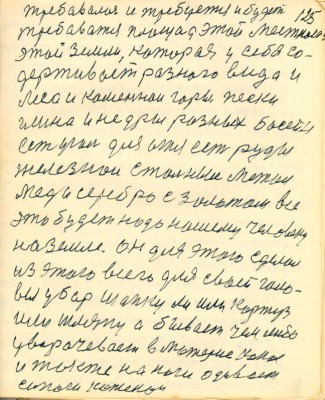 требовался и требуется и будет 125
требоватся площад этой местност
этой земли, которая у себя со-
держивает разного вида и
леса и каменнои горы пески
глина и недры разных богаты
ест угол для огня ест руды
железнои стольные метал
медь серебро с золотом все
это будет надо нашему человеку
на земле. он для этого сделал
из этого всего для своей голо-
вы убор шапку ли или картуз
или шляпу а бывает чем либо
уворачевает в материе какой
и тоже на ноги одевает
сапоги коженои